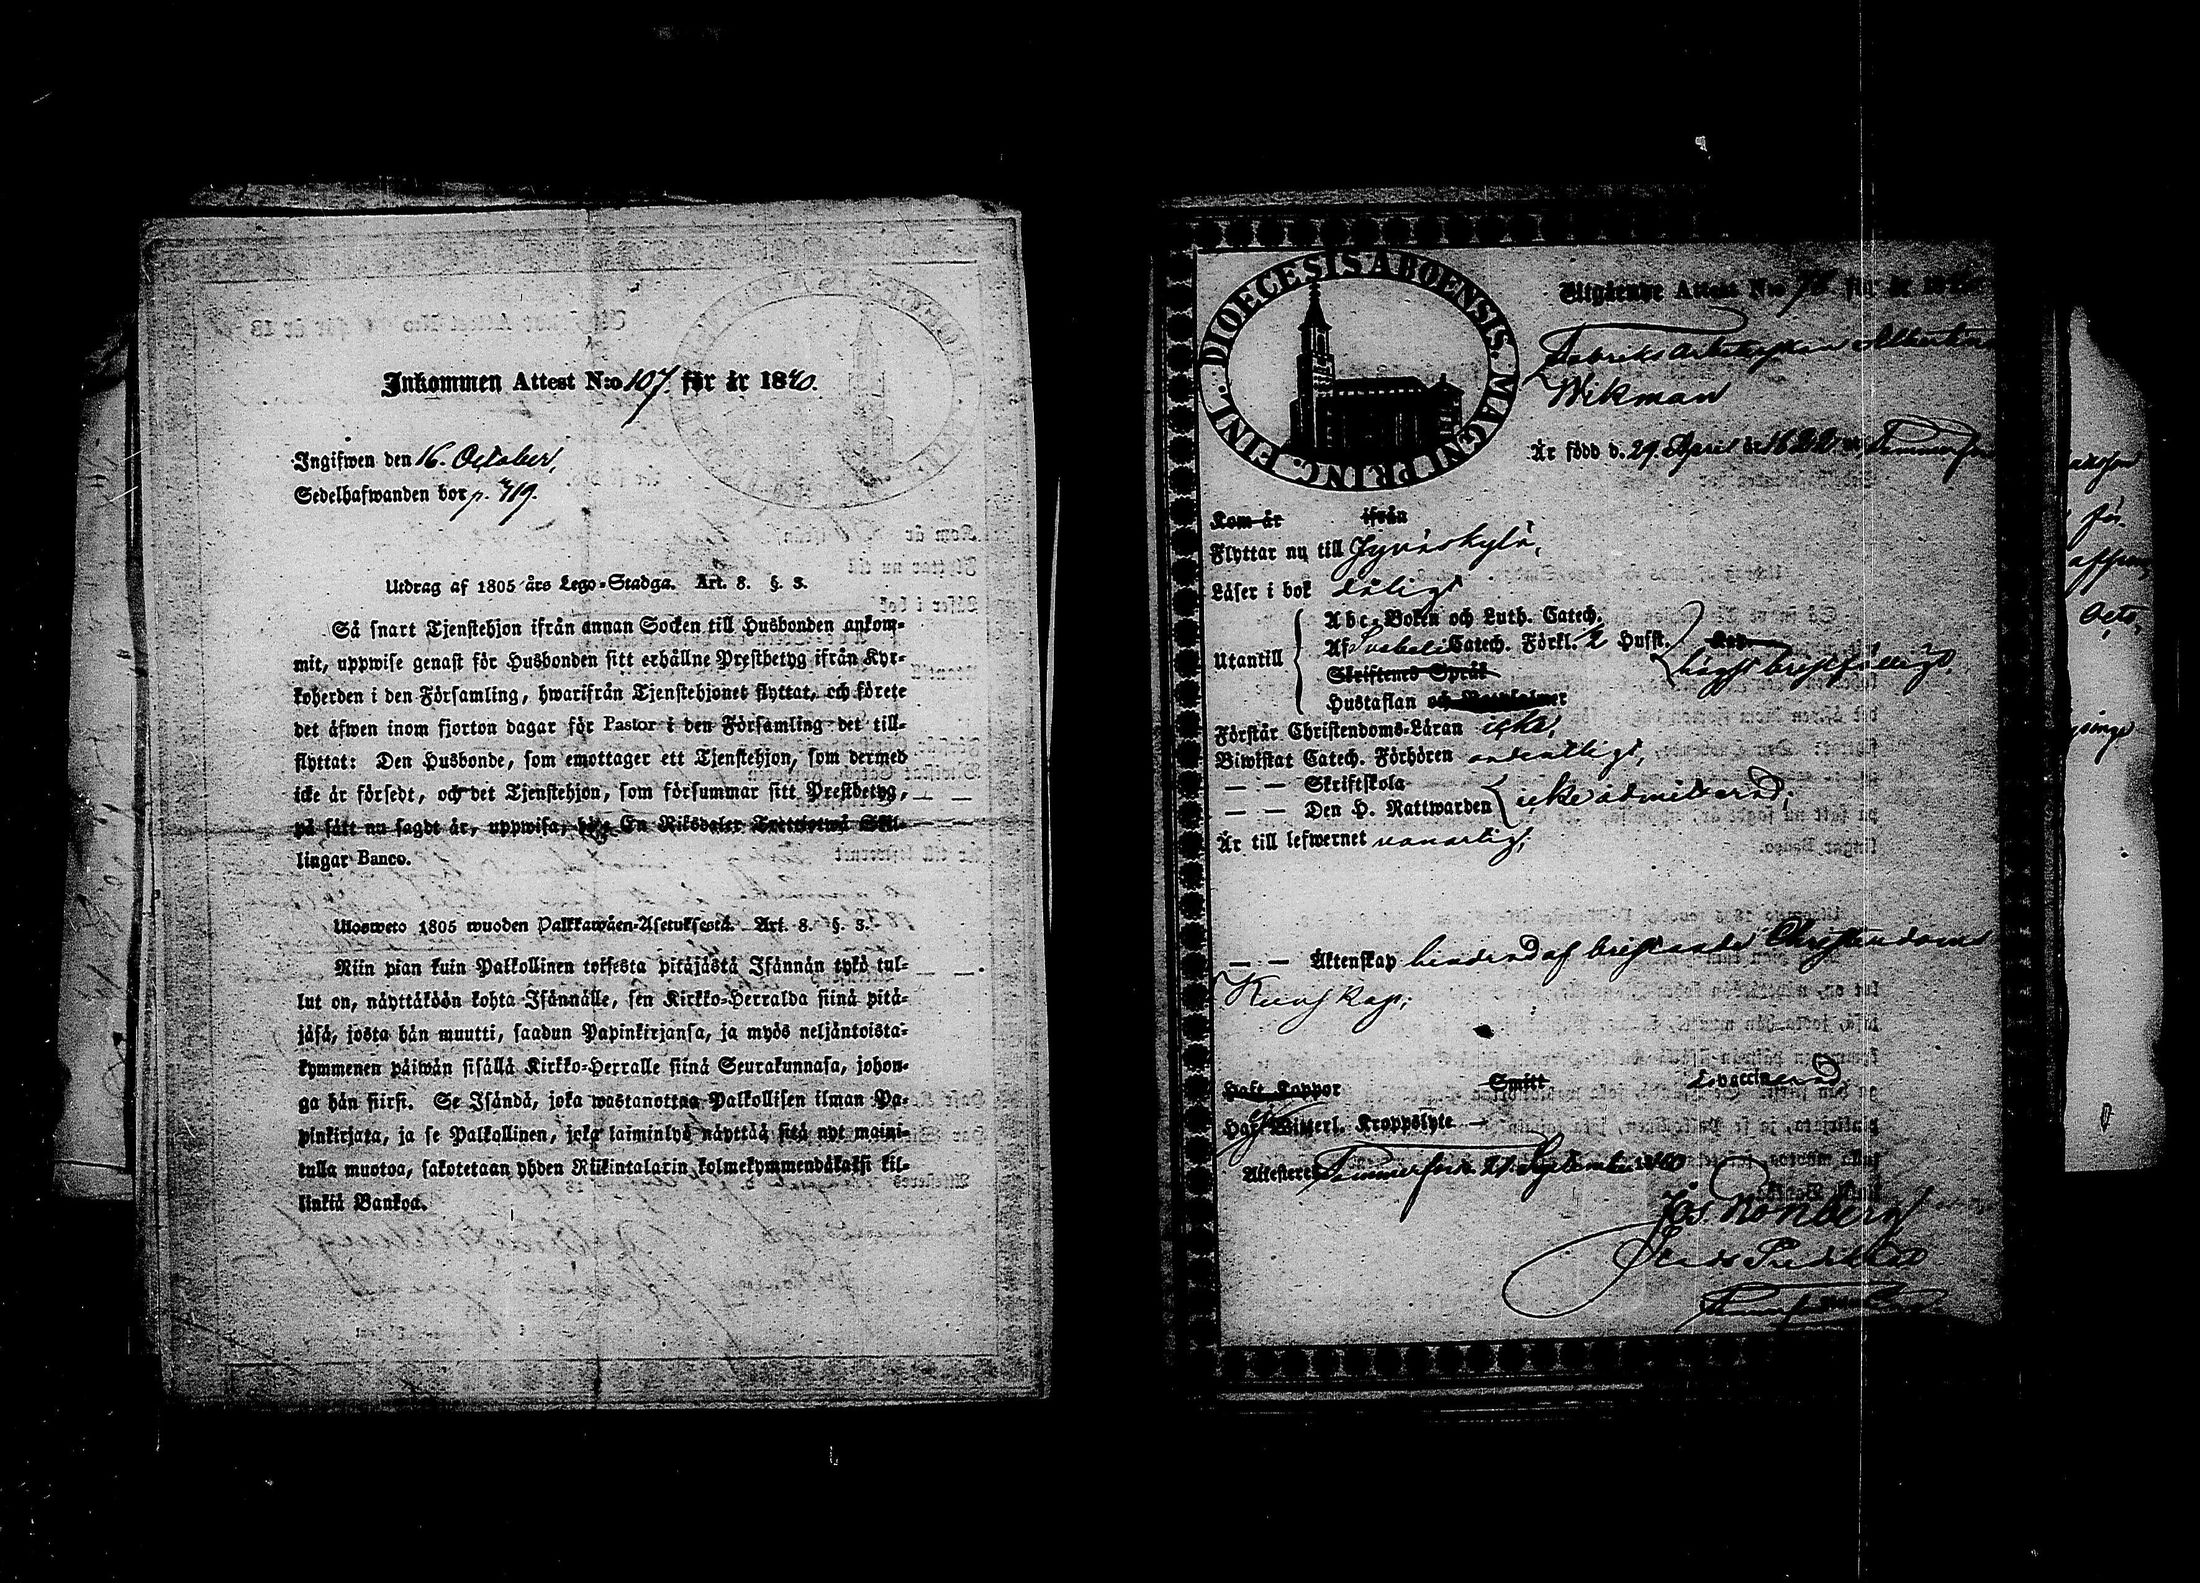 Inkommen Attest N:o 107. för år 1840.
Ingifwen den 16. October,
Sedelhafwanden bor p. 719.
Utdrag af 1805 års Lego-Stadga. Art. 8. §. 3.
Så snart Tjenstehjon ifrån annan Socken till Husbonden ankom-
mit, uppwise genast för Husbonden sitt erhållne Prestbetyg ifrån Kyr-
koherden i den Församling, hwarifrån Tjenstehjonet flyttat, och förete
det äfwen inom fjorton dagar för Pastor i den Församling det till-
flyttat: Den Husbonde, som emottager ett Tjenstehjon, som dermed
icke är försedt, och det Tjenstehjon, som försummar sitt Prestbetyg,
på sätt nu sagdt är, uppwisa, böte En Riksdaler Trettiotwå Skil-
lingar Banco.
Ulosweto 1805 wuoden Palkkawäen-Asetuksestä. Art. 8. §. 3.
Niin pian kuin Palkollinen toisesta pitäjästä Isännän tykö tul-
lut on, näyttäköön kohta Isännälle, sen Kirkko-Herralda siinä pitä-
jäsä, josta hän muutti, saadun Papinkirjansa, ja myös neljäntoista-
kymmenen päiwän sisällä Kirkko-Herralle siinä Seurakunnasa, johon-
ga hän siirsi. Se Isändä, joka wastanottaa Palkollisen ilman Pa-
pinkirjata, ja se Palkollinen, joka laiminlyö näyttää sitä nyt maini-
tulla muotoa, sakotetaan yhden Riikintalarin kolmekymmendäkaksi kil-
linkiä Bankoa.
DIOECESIS ABOENSIS. MAGNI PRINC. FINL.
Utgående Attest N:o för år
Fabriks Arbetskan Albertina
Wikman
Är född d. 29. April år 1822 Tammerfors
Kom år ifrån
Flyttar nu till Jyväskylä,
Läser i bok dåligt
Abc-Boken och Luth. Catech.
Utantill Af Svebelii Catech. Förkl. 2 Hufst. Kap.
högst bristfälligt,
Skriftens Språk
Hustaflan och
Förstår Christendoms-Läran icke,
Biwistat Catech. Förhören ordentligt,
— — Skriftskola
— — Den H. Nattwarden icke admitterad;
Är till lefwernet vanartig;
— — Äktenskap hindrad af bristande Christendoms
Kunskap;
Haft Koppor Smitt Vaccinerad
Har Witterl. Kroppslyte —
Attesteres Tammerfors 27 September 1840
Jos. Rönberg